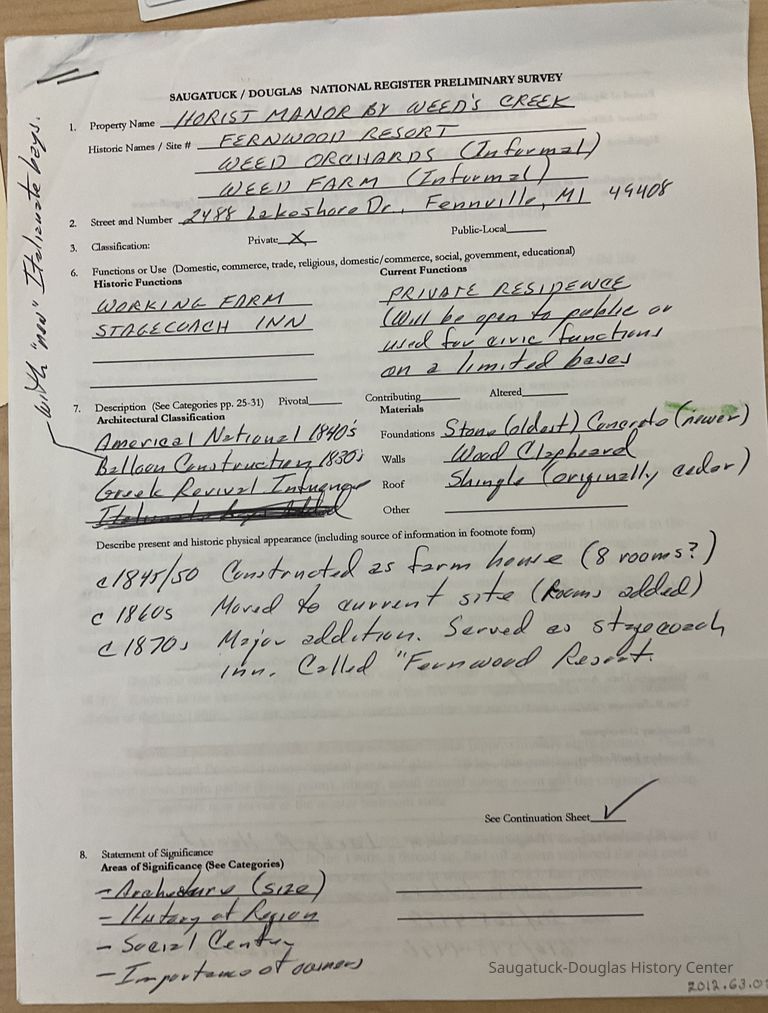 SAUGATUCK / DOUGLAS NATIONAL REGISTER PRELIMINARY SURVEY
1. Property Name HORIST MANOR BY WEED'S CREEK
Historic Names / Site # FERNWOOD RESORT
WEED ORCHARDS (Informal)
WEED FARM (Informal)
2. Street and Number 2488 Lakeshore Dr., Fennville, MI 49408
3. Classification: Private X Public-Local
6. Functions or Use (Domestic, commerce, trade, religious, domestic/commerce, social, government, educational)
Historic Functions Current Functions
WORKING FARM PRIVATE RESIDENCE
STAGECOACH INN (Will be open to public or
used for civic functions
on a limited bases
with "new" Italianate bays.
7. Description (See Categories pp. 25-31) Pivotal Contributing Altered
Architectural Classification Materials
Americal National 1840's Foundations Stone (oldest) Concrete (newer)
Balloon Construction 1830's Walls Wood Clapboard
Greek Revival Influence Roof Shingle (originally cedar)
Other
Describe present and historic physical appearance (including source of information in footnote form)
c 1845/50 Constructed as farm house (8 rooms?)
c 1860s Moved to current site (Rooms added)
c 1870s Major addition. Served as stagecoach
inn. Called "Fernwood Resort.
See Continuation Sheet ✓
8. Statement of Significance
Areas of Significance (See Categories)
- (size)
- History of Region
- Social
- Importance of owners
Saugatuck-Douglas History Center
2012.63.0